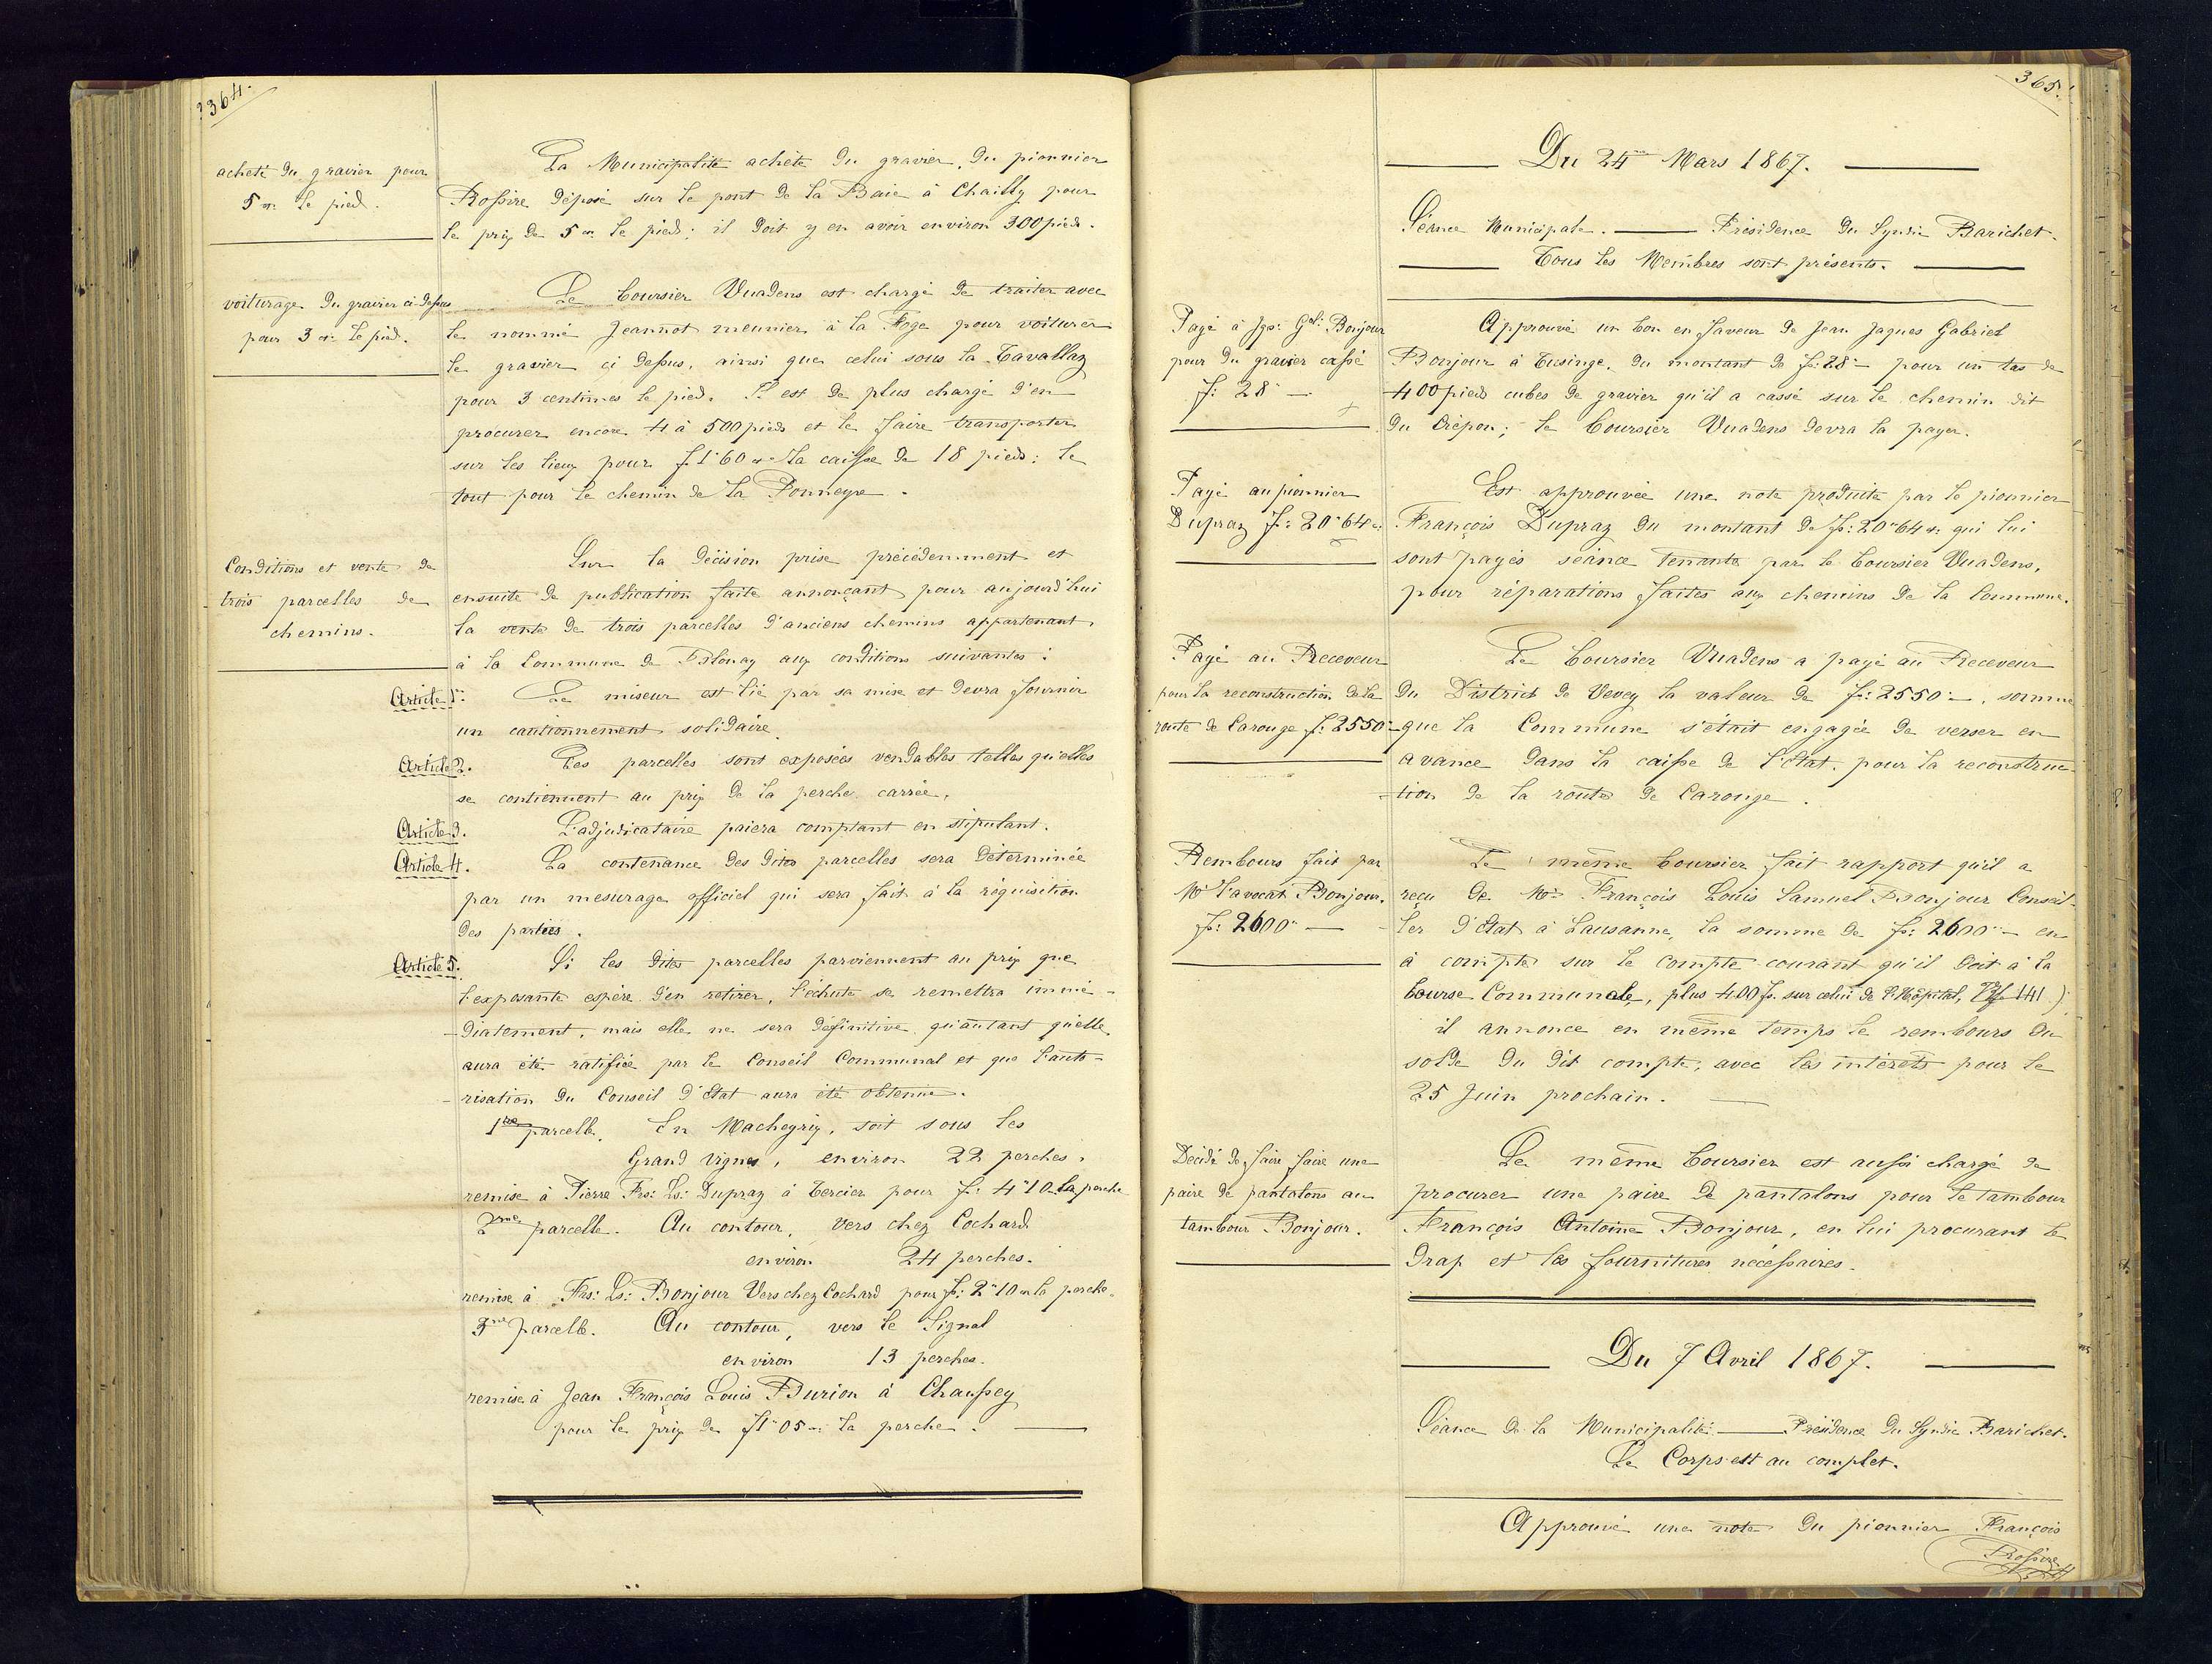 364.
acheté du gravier pour
5 cs. le pied.
La Municipalité achète du gravier, du pionnier
Rossire déposé sur le pont de la Baie à Chailly pour
le prix de 5 cs. le pied; il doit y en avoir environ 300 pieds.
voiturage du gravier ci-dessus
pour 3 cs. le pied.
Le boursier Vuadens est chargé de traiter avec
le nommé Jeannot meunier à la Foge pour voiturer
le gravier ci dessus, ainsi que celui sous la Tavallaz
pour 3 centimes le pied. Il est de plus chargé d'en
procurer encore 4 à 500 pieds et le faire transporter
sur les lieux pour f 1"60 cs la caisse de 18 pieds; le
tout pour le chemin de la Ponneyre.
Conditions et vente de
trois parcelles de
chemins.
Sur la décision prise précédemment et
ensuite de publication faite annonçant pour aujourd'hui
la vente de trois parcelles d'anciens chemins appartenant,
à la Commune de Blonay aux conditions suivantes:
Article 1er. Le miseur est lié par sa mise et devra fournir
un cautionnement solidaire.
Article 2. Les parcelles sont exposées vendables telles qu'elles
se contiennent au prix de la perche carrée.
Article 3. L'adjudicataire paiera comptant en stipulant.
Article 4. La contenance des dites parcelles sera déterminée
par un mesurage officiel qui sera fait à la réquisition
des parties.
Article 5. Si les dites parcelles parviennent au prix que
l'exposante espère d'en retirer, l'échute se remettra immé-
-diatement, mais elle ne sera définitive qu'autant qu'elle
aura été ratifiée par le Conseil Communal et que l'auto-
-risation du Conseil d'Etat aura été obtenue.
1re parcelle. En Machegrix, soit sous les
Grand vignes, environ 22 perches,
remise à Pierre Frs: Ls: Dupraz à Tercier pour f: 4"10 la perche
2me parcelle. Au contour, vers chez Cochard
environ 24 perches.
remise à Frs: Ls: Bonjour Vers chez Cochard pour f: 2"10 cs la perche.
3me parcelle. Au contour, vers le Signal
environ 13 perches.
remise à Jean François Louis Burion à Chaussey
pour le prix de f 1"05 cs la perche.
365.
Du 24me Mars 1867.
Séance Municipale. Présidence du Syndic Barichet.
Tous les Membres sont présents.
Payé à Jqs: Gel: Bonjour
pour du gravier cassé
f: 28"
Approuvé un bon en faveur de Jean Jaques Gabriel
Bonjour à Tusinge, du montant de f: 28"- pour un tas de
400 pieds cubes de gravier qu'il a cassé sur le chemin dit
du Crépon; le boursier Vuadens devra la payer.
Payé au pionnier
Dupraz f: 20"64 cs.
Est approuvée une note produite par le pionnier
François Dupraz du montant de f: 20"64 cs. qui lui
sont payés séance tenante par le boursier Vuadens,
pour réparations faites aux chemins de la Commune.
Payé au Receveur
pour la reconstruction de la
route de Carouge f: 2550"-
Le boursier Vuadens a payé au Receveur
du District de Vevey la valeur de f: 2550"-, somme
que la Commune s'était engagée de verser en
avance dans la caisse de l'état, pour la reconstruc-
-tion de la route de Carouge.
Rembours fait par
Mr l'avocat Bonjour.
f: 2600"
Le même boursier fait rapport qu'il a
reçu de Mr François Louis Samuel Bonjour Conseil-
-ler d'Etat à Lausanne, la somme de f: 2600"- en
à compte sur le compte courant qu'il doit à la
bourse Communale, plus 400 f. sur celui de l'Hôpital, 141)
il annonce en même temps le rembours du
solde du dit compte, avec les intérêts pour le
25 Juin prochain.
Décidé de faire faire une
paire de pantalons au
tambour Bonjour.
Le même boursier est aussi chargé de
procurer une paire de pantalons pour le tambour
François Antoine Bonjour, en lui procurant le
drap et les fournitures nécessaires.
Du 7 Avril 1867.
Séance de la Municipalité Présidence du Syndic Barichet.
Le Corps est au complet.
Approuvé une note du pionnier François
Rossire